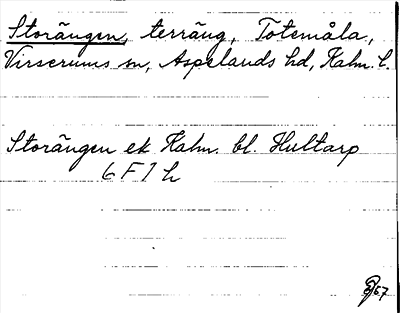 Storängen, terräng, Totemåla,
Virserums sn, Aspelands hd, Kalm. l.
Storängen ek Kalm. bl. Hultarp
6 F 7 h
67